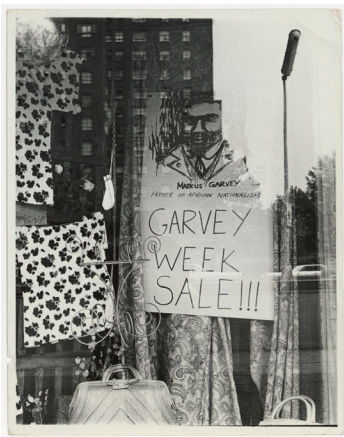 MARKUS GARVEY
FATHER OF AFRICAN NATIONALISM
GARVEY
WEEK
SALE!!!